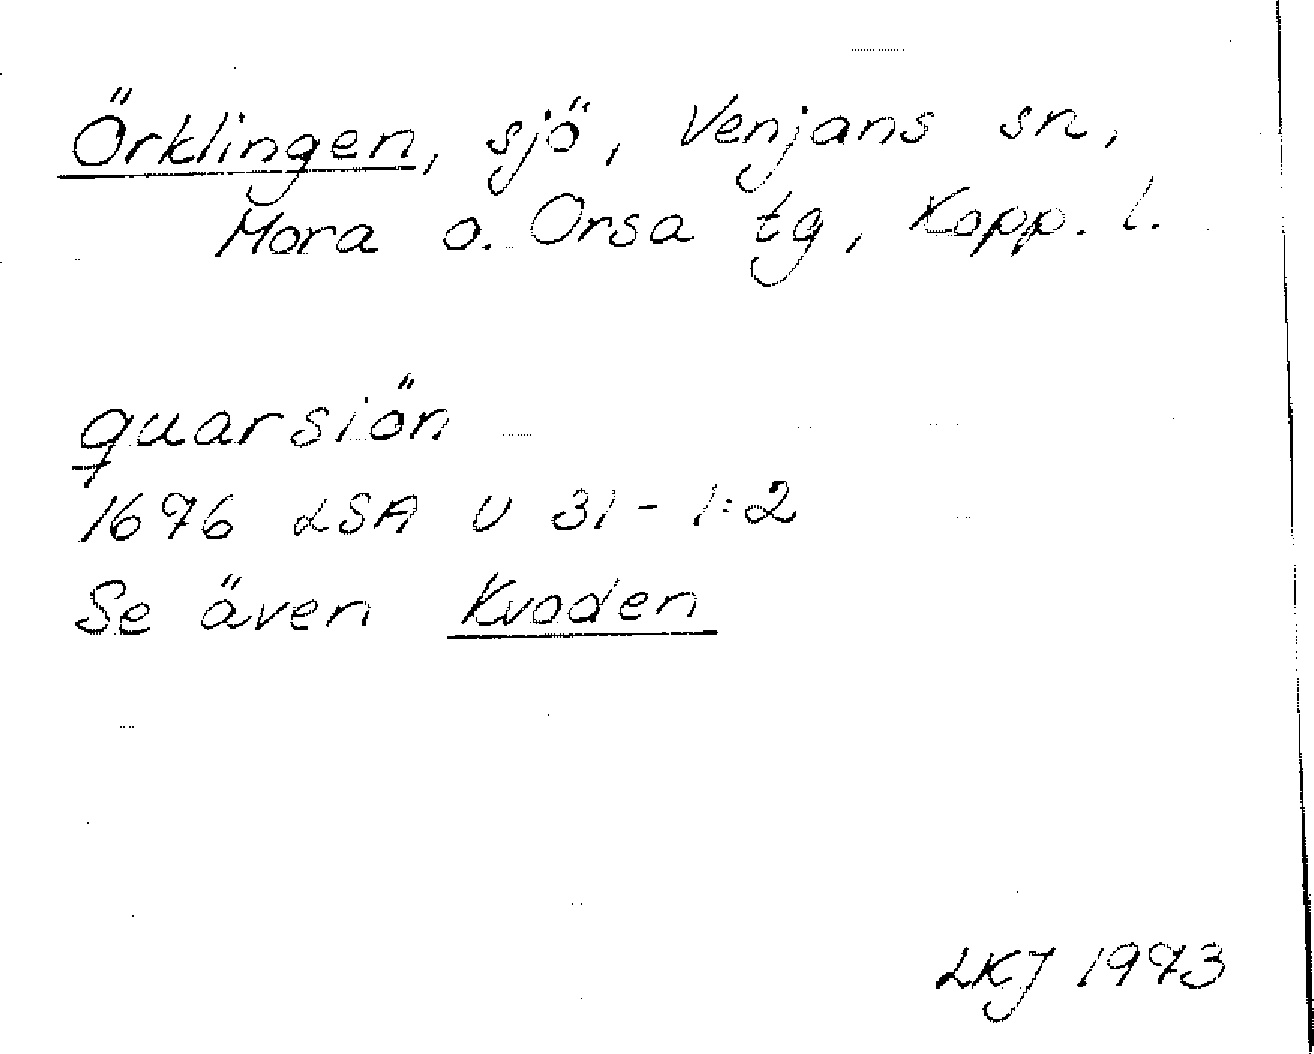 Örklingen, sjö, Venjans sn,
Mora o. Orsa tg, Kopp. l.
quarsiön
1696 LSA U 31-1:2
Se även Kvoden
LKJ 1993